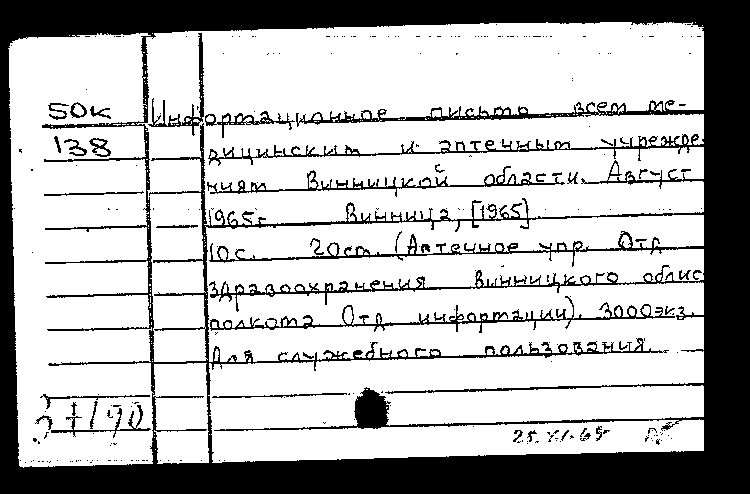 50к Информационное письмо всем ме-
138 дицинским и аптечным учрежде-
ниям Винницкой области. Август
1965г. Винница, [1965]
10с. 20см. (Аптечное упр. Отд
здравоохранения Винницкого облис
полкома Отд информации). 3000экз.
Для служебного пользования.
25.XI.65